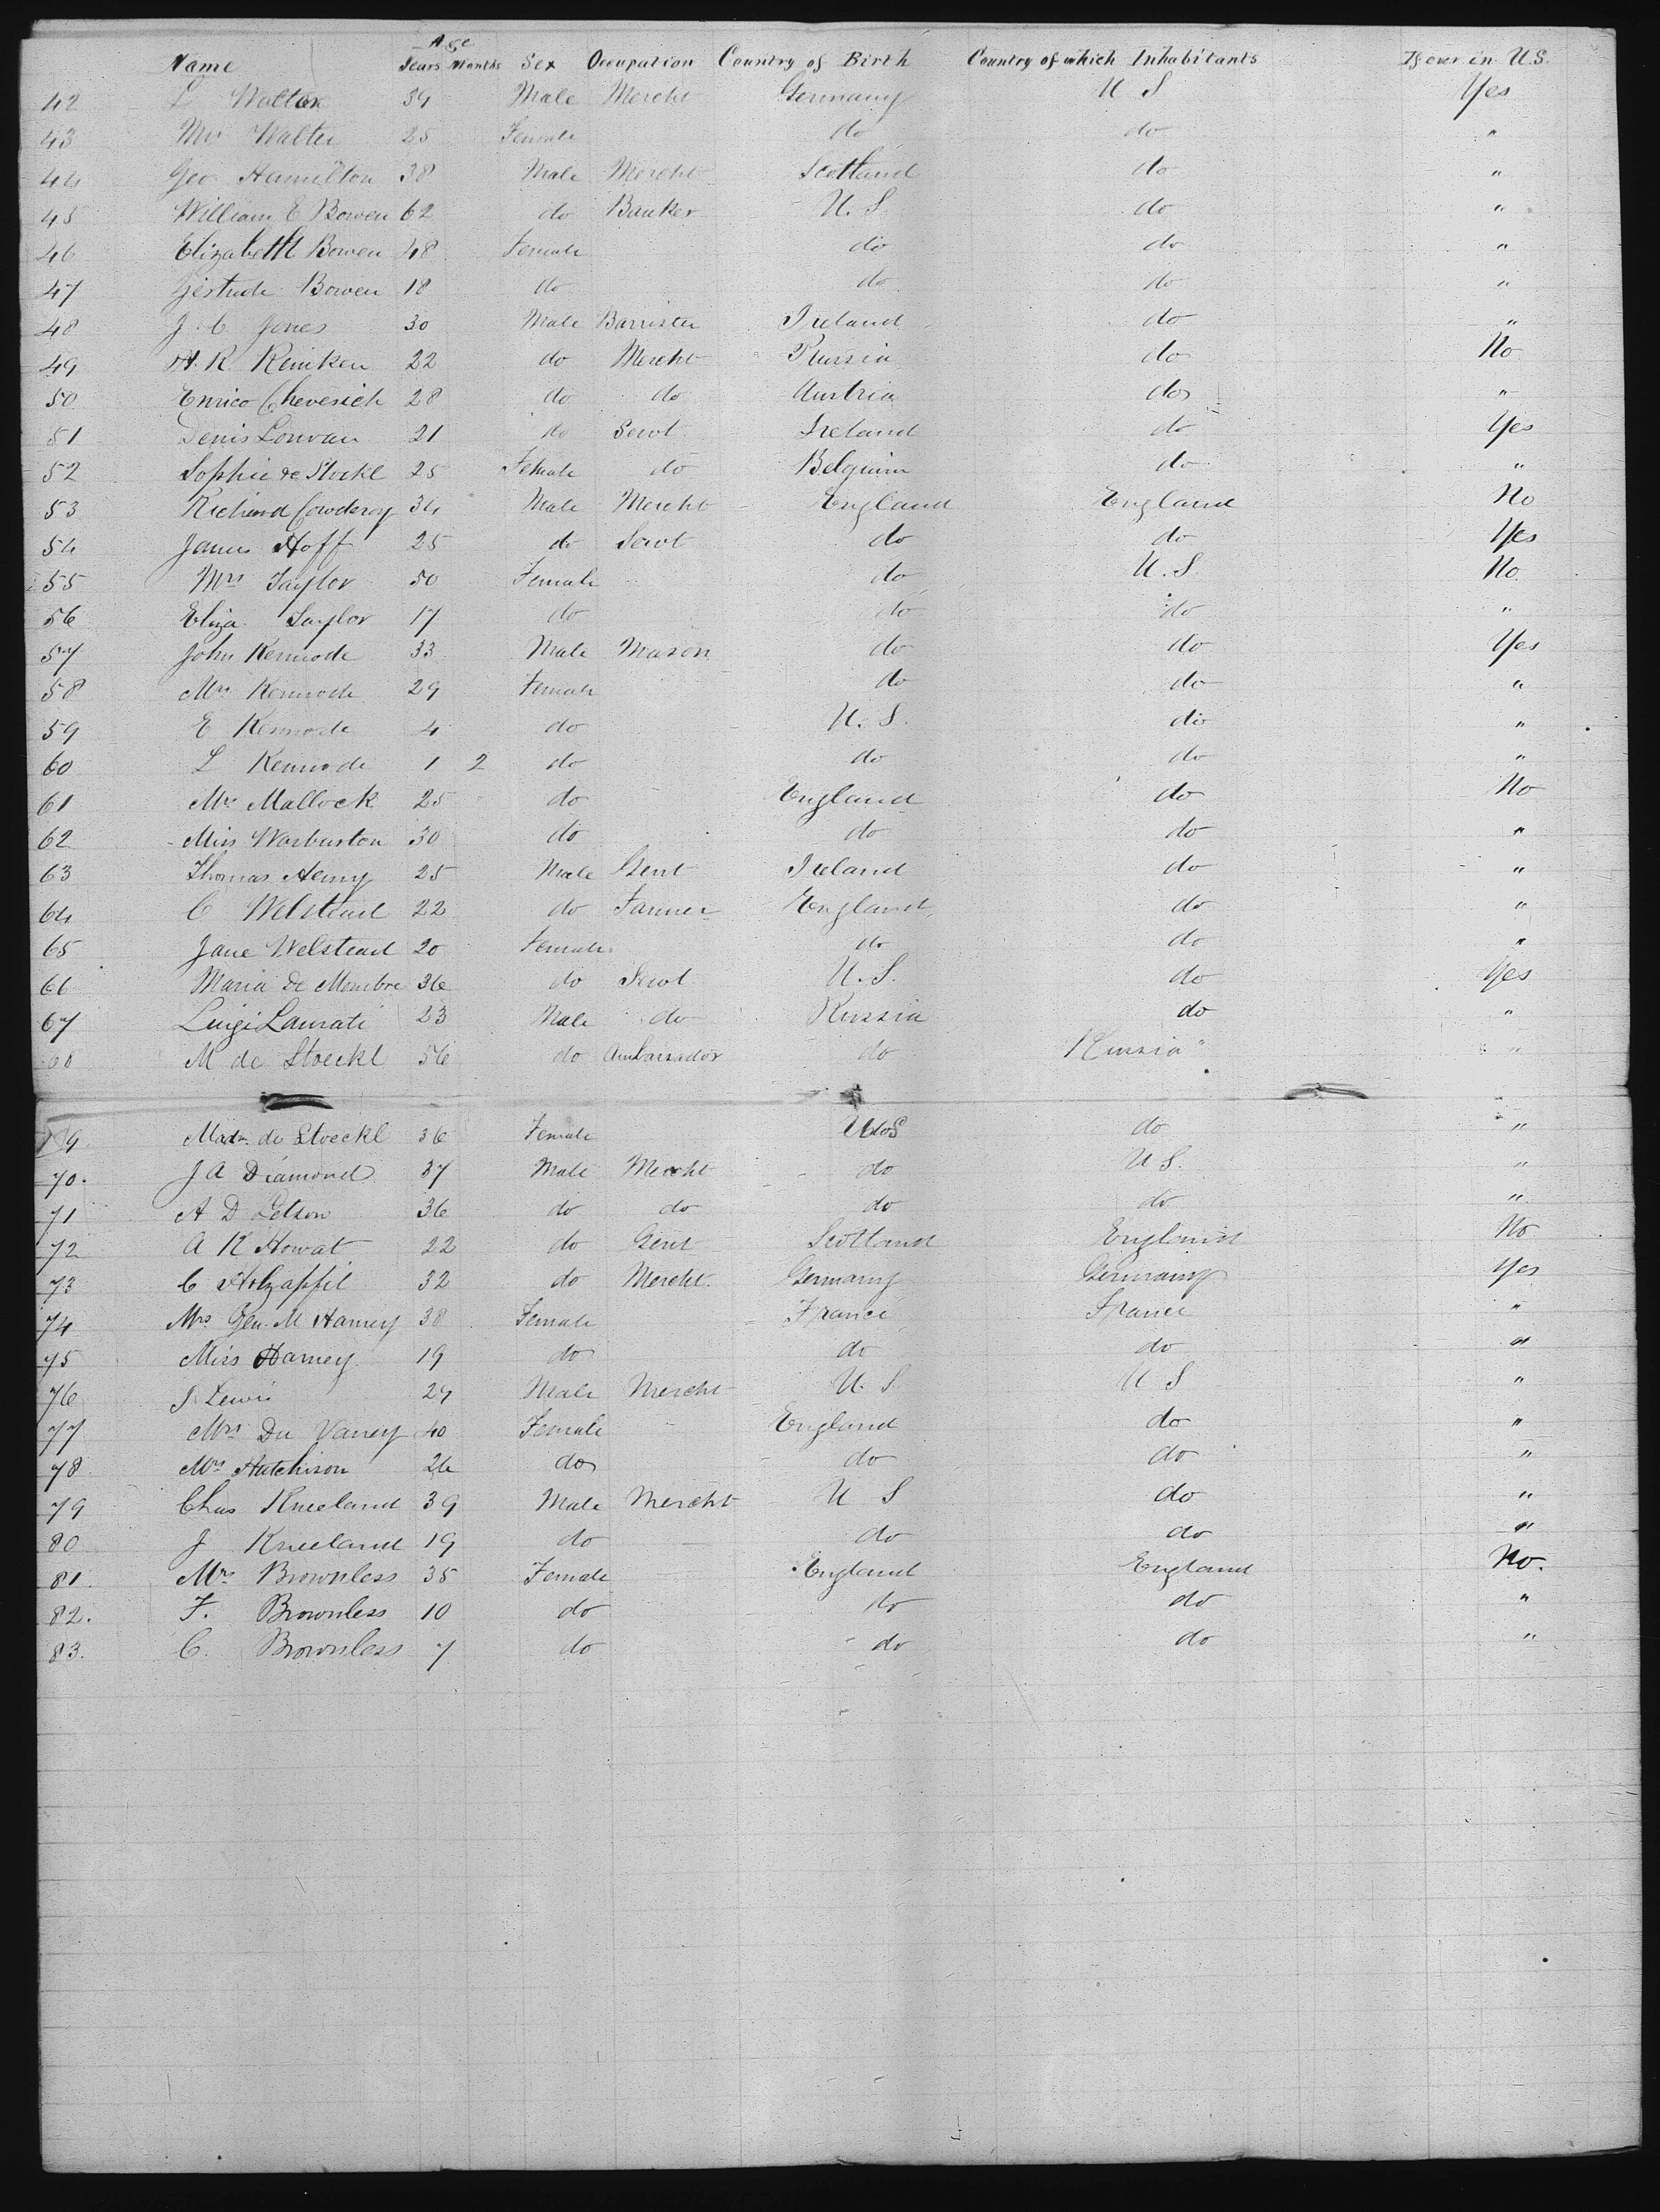 Age
Name Years Months Sex Occupation Country of Birth Country of which Inhabitants If ever in U.S.
42 L Walter 39 Male Mercht Germany U S Yes
43 Mrs Walter 25 Female do do "
44 Geo Hamilton 38 Male Mercht Scotland do "
45 William E Bowen 62 do Banker U.S. do "
46 Elizabeth Bowen 48 Female do do "
47 Gertrude Bowen 18 do do do "
48 J. C Jones 30 Male Barrister Ireland do "
49 H. R. Reniken 22 do Mercht do No
50 Enrico Cheverich 28 do do Austria do "
51 Denis 21 do Servt Ireland do Yes
52 Sophie de Stockl 25 Female do Belguim do "
53 Richard Cowderoy 34 Male Mercht England England No
54 James Hoff 25 do Servt do do Yes
55 Mrs Taylor 50 Female do U.S. No
56 Eliza Taylor 17 do do do "
57 John Kermode 33 Male Mason do do Yes
58 Mrs Kermode 29 Female do do "
59 E Kermode 4 do U.S. do "
60 L Kermode 1 2 do do do "
61 Mrs Mallock 25 do England do No
62 Miss Warburton 30 do do do "
63 Thomas Henry 25 Male Gent Ireland do "
64 C Welstead 22 do Farmer England do "
65 Jane Welstead 20 Female do do "
66 Maria de Membre 36 do Servt U.S. do Yes
67 Luigi Laurati 23 Male do Russia do "
68 M de Stoeckl 56 do Ambassador do Russia "
69 Madm. de Stoeckl 36 Female U S do "
70. J A Diamond 37 Male Mercht do U S. "
71 A D Letson 36 do do do do "
72 A K Howat 22 do Gent Scotland England No
73 C Holzapfil 32 do Mercht Germany Germany Yes
74 Mrs Gen. M Harney 38 Female France France "
75 Miss Harney 19 do do do "
76 J Lewis 29 Male Mercht U.S. U S "
77 Mrs Du Vaney 40 Female England do "
78 Mrs Hutchison 26 do do do "
79 Chas Kneeland 39 Male Mercht U S do "
80 J Kneeland 19 do do do "
81. Mrs Brownless 35 Female England England No.
82. F. Brownless 10 do do do "
83. C. Brownless 7 do do do "